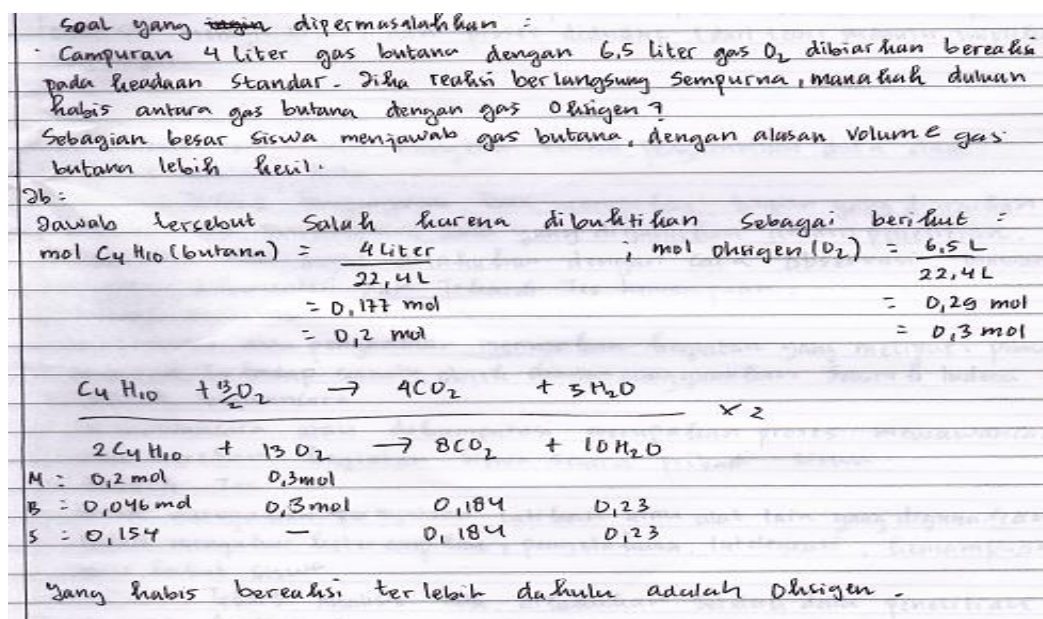 Soal yang ingin dipermasalahkan :
Campuran 4 liter gas butana dengan 6,5 liter gas O₂ dibiarkan bereaksi
pada keadaan standar. Jika reaksi berlangsung sempurna, manakah duluan
habis antara gas butana dengan gas Oksigen ?
Sebagian besar siswa menjawab gas butana, dengan alasan volume gas
butana lebih kecil.
Jb :
Jawab tersebut Salah karena dibuktikan Sebagai berikut :
mol C4 H10 (butana) = 4 Liter / 22,4 L ; mol Oksigen (O₂) = 6,5 L / 22,4 L
= 0,177 mol = 0,29 mol
= 0,2 mol = 0,3 mol
C4 H10 + 13/2 O₂ → 4CO₂ + 5H₂O
× 2
2C4H10 + 13 O₂ → 8CO₂ + 10H₂O
M : 0,2 mol 0,3mol
B = 0,046 mol 0,3 mol 0,184 0,23
S = 0,154 — 0,184 0,23
Yang habis bereaksi terlebih dahulu adalah Oksigen .